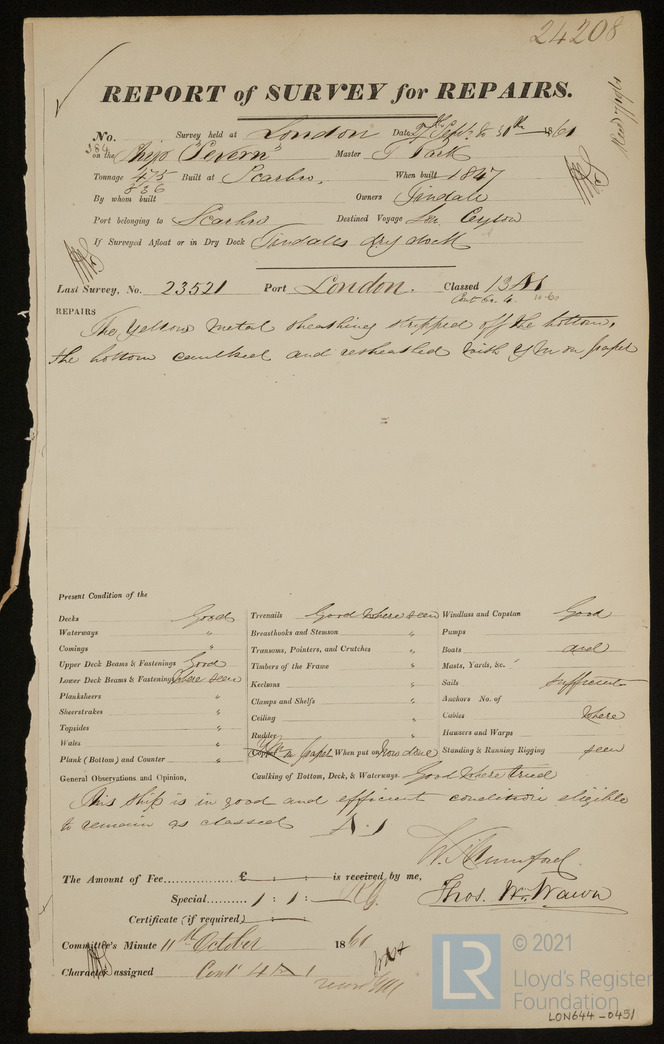 24208
REPORT of SURVEY for REPAIRS.
No. 384 Survey held at London Date 7th Septr to 30th 1861
on the Ship "Severn" Master T Park
Tonnage 475 Built at Scarbro, When built 1847
836
By whom built Owners Tindale
Port belonging to Scarbro Destined Voyage Ceylon
If Surveyed Afloat or in Dry Dock Tindales dry dock
Last Survey, No. 23521 Port London. Classed 13 A1
REPAIRS
The Yellow Metal sheathing stripped off the bottom,
the bottom caulked and resheathed with YM on papel
Present Condition of the
Decks Good Treenails Good where seen Windlass and Capstan Good
Waterways " Breasthooks and Stemson " Pumps
Comings " Transoms, Pointers, and Crutches " Boats and
Upper Deck Beams & Fastenings Good Timbers of the Frame " Masts, Yards, &c.
Lower Deck Beams & Fastenings where seen Keelsons " Sails sufficient
Planksheers " Clamps and Shelfs " Anchors No. of
Sheerstrakes " Ceiling " Cables where
Topsides " Rudder Hawsers and Warps
Wales " Copper YM on papel When put on Now done Standing & Running Rigging seen
Plank (Bottom) and Counter "
General Observations and Opinion, Caulking of Bottom, Deck, & Waterways Good where tried
This ship is in good and efficient condition eligible
to remain as classed A.1
The Amount of Fee £ : : is received by me,
Special 1 : 1 :
Thos. Wm. Wawn
Certificate (if required) : :
Committee's Minute 11th October 1861
Character assigned Cont 4 A 1
© 2021
LR
Lloyd's Register
Foundation
LON644-0451